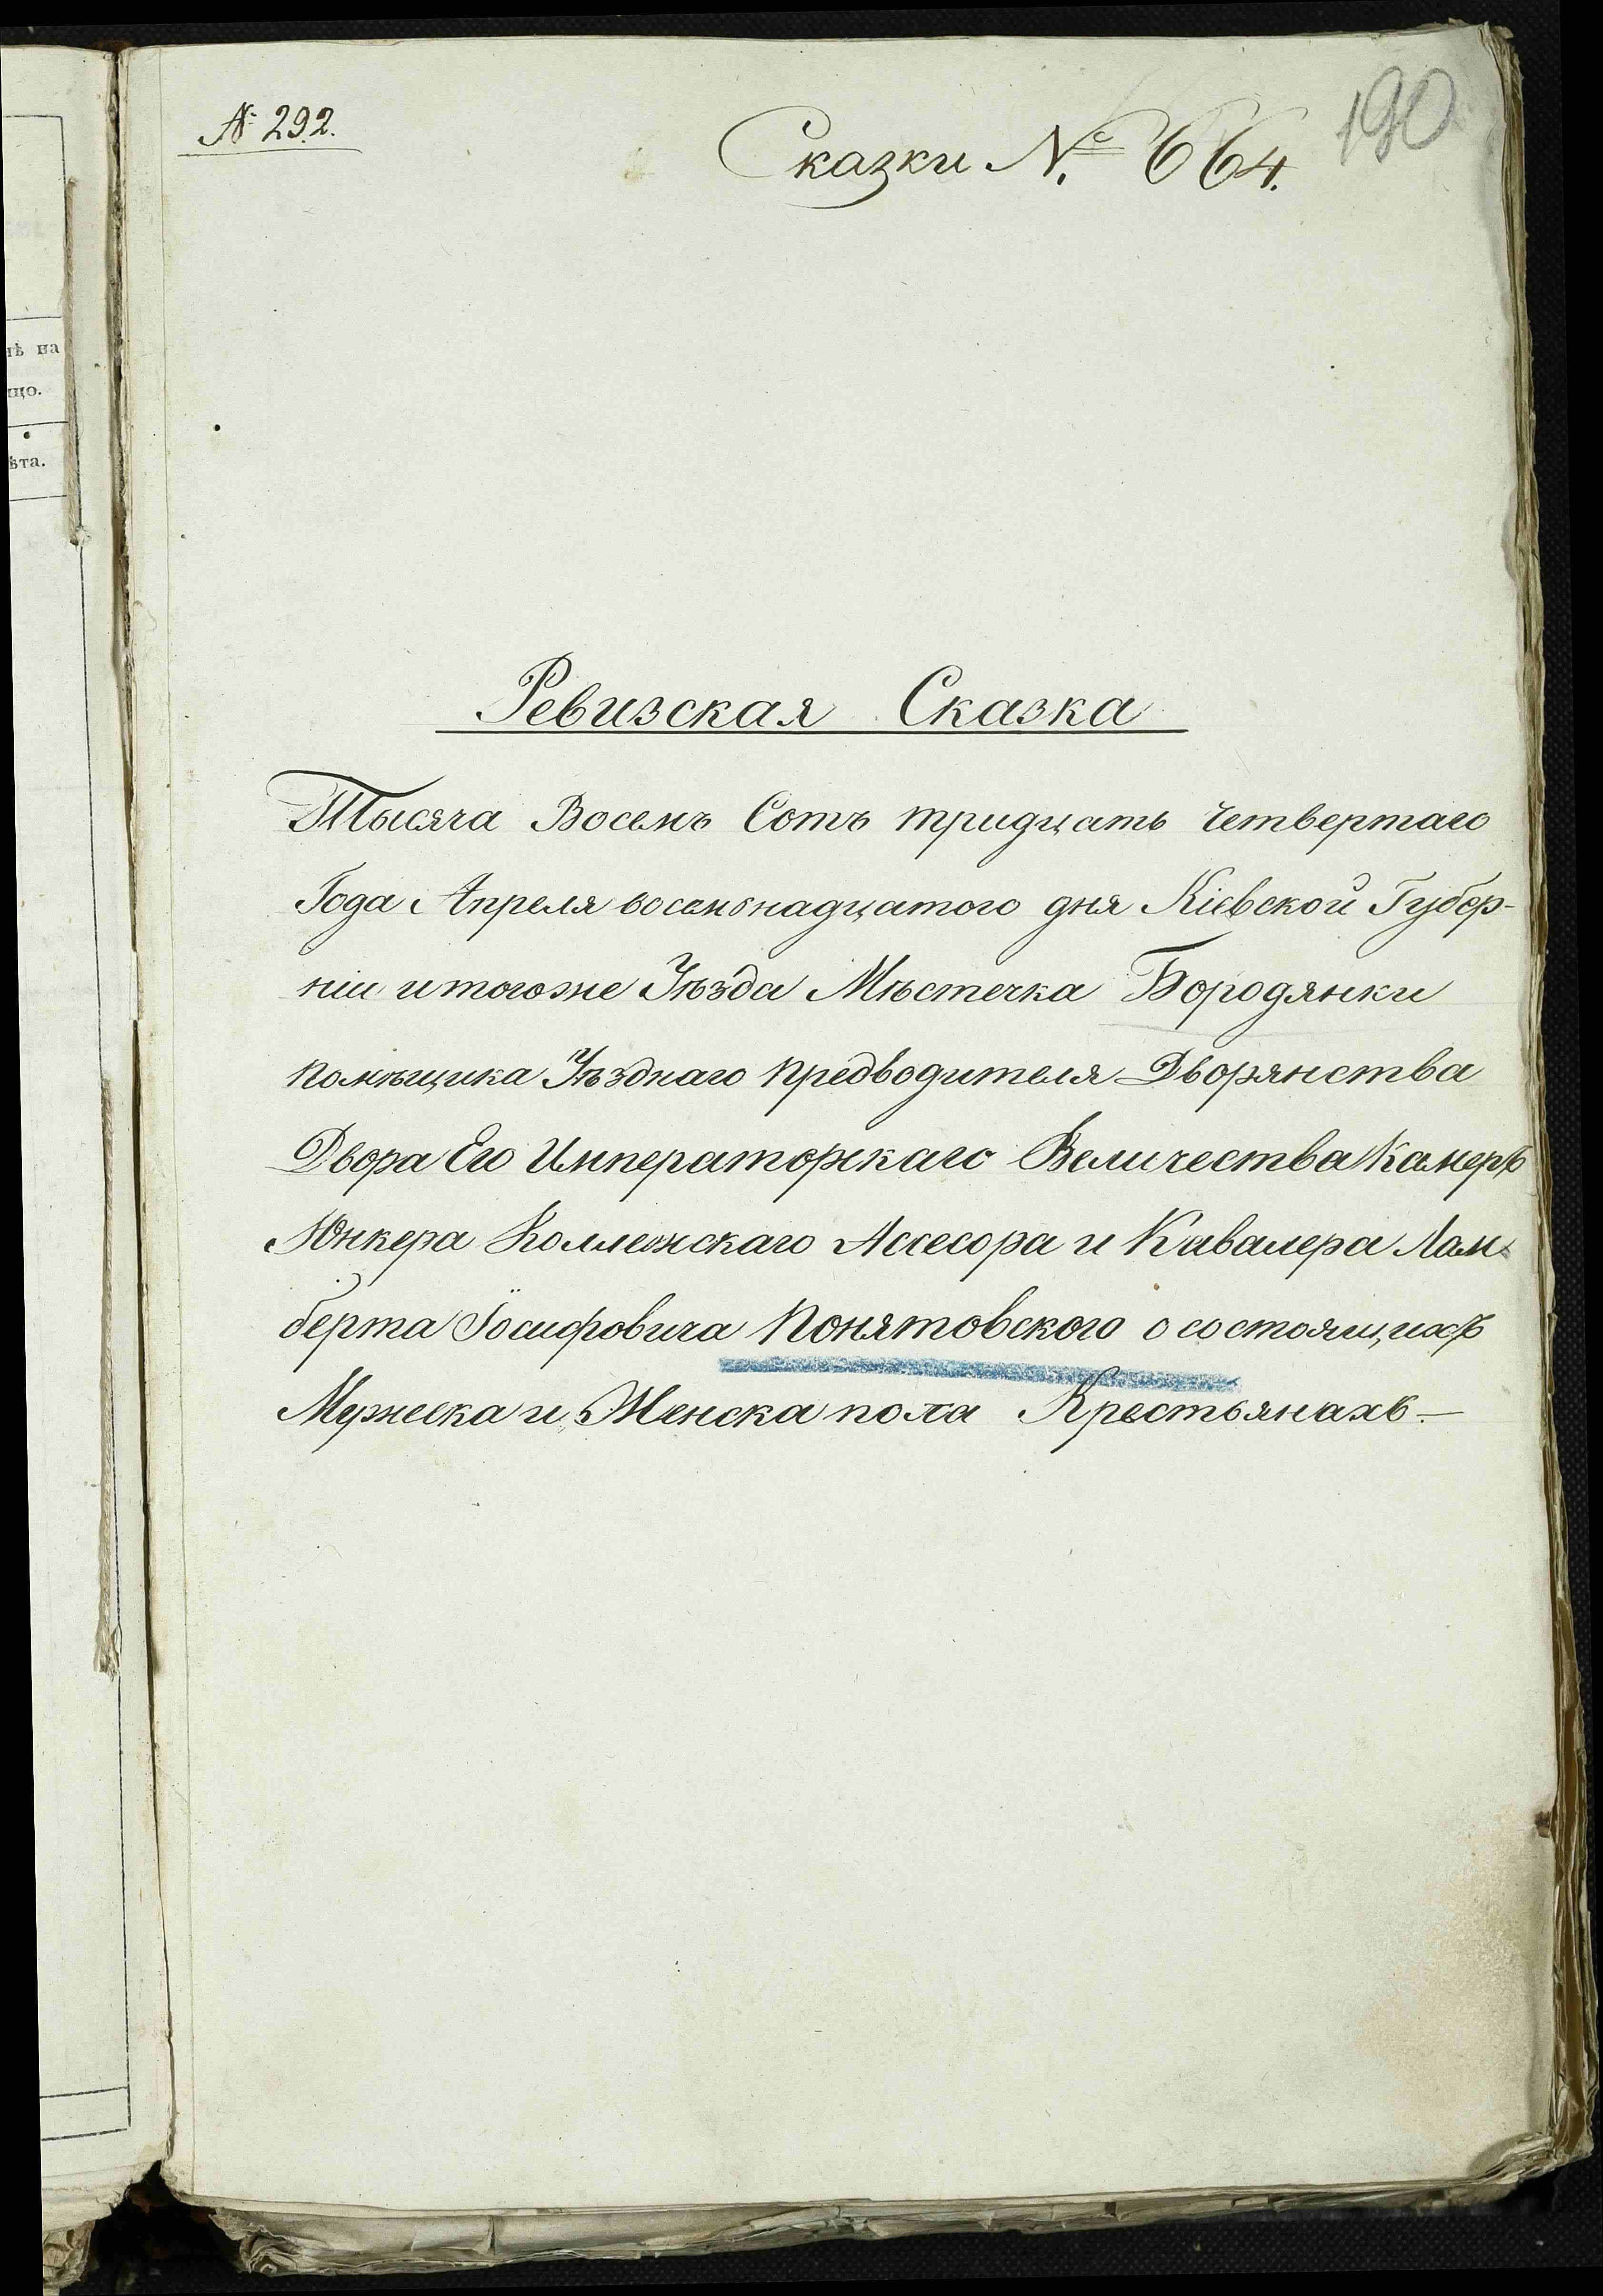 № 292.
Сказки № 664.
190
ѣ на
що.
ѣта.
Ревизская Сказка
Тысяча Восемъ Сотъ тридцать четвертаго
Года Апреля восемьнадцатого дня Кіевской Губер-
ніи и тогоже Уѣзда Мѣстечка Бородянки
помѣщика Уѣзднаго предводителя Дворянства
Двора Его Императорскаго Величества Камеръ
Юнкера Коллежскаго Ассесора и Кавалера Лам-
берта Іосифовича Понятовского о состоящихъ
Мужеска и Женска пола Крестьянахъ –